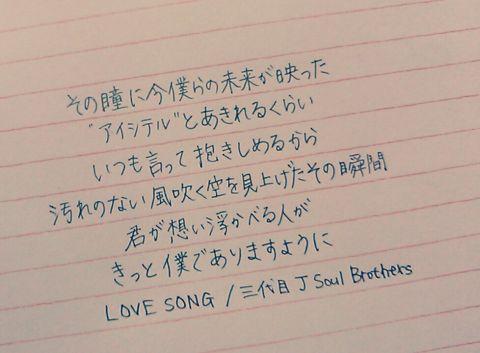 その瞳に今僕らの未来が映った
"アイシテル"とあきれるくらい
いつも言って抱きしめるから
汚れのない風吹く空を見上げたその瞬間
君が想い浮かべる人が
きっと僕でありますように
LOVE SONG / 三代目 J Soul Brothers